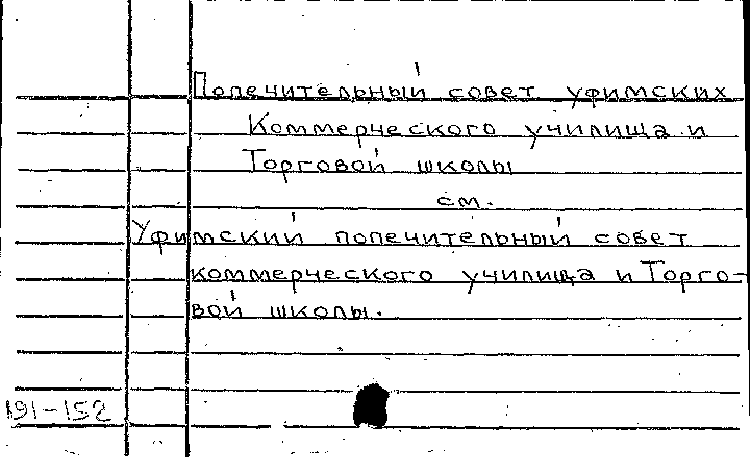 Попечительный совет уфимских
Коммерческого училища и
Торговой школы
см.
Уфимский попечительный совет
коммерческого училища и Торго-
вой школы.
191-152